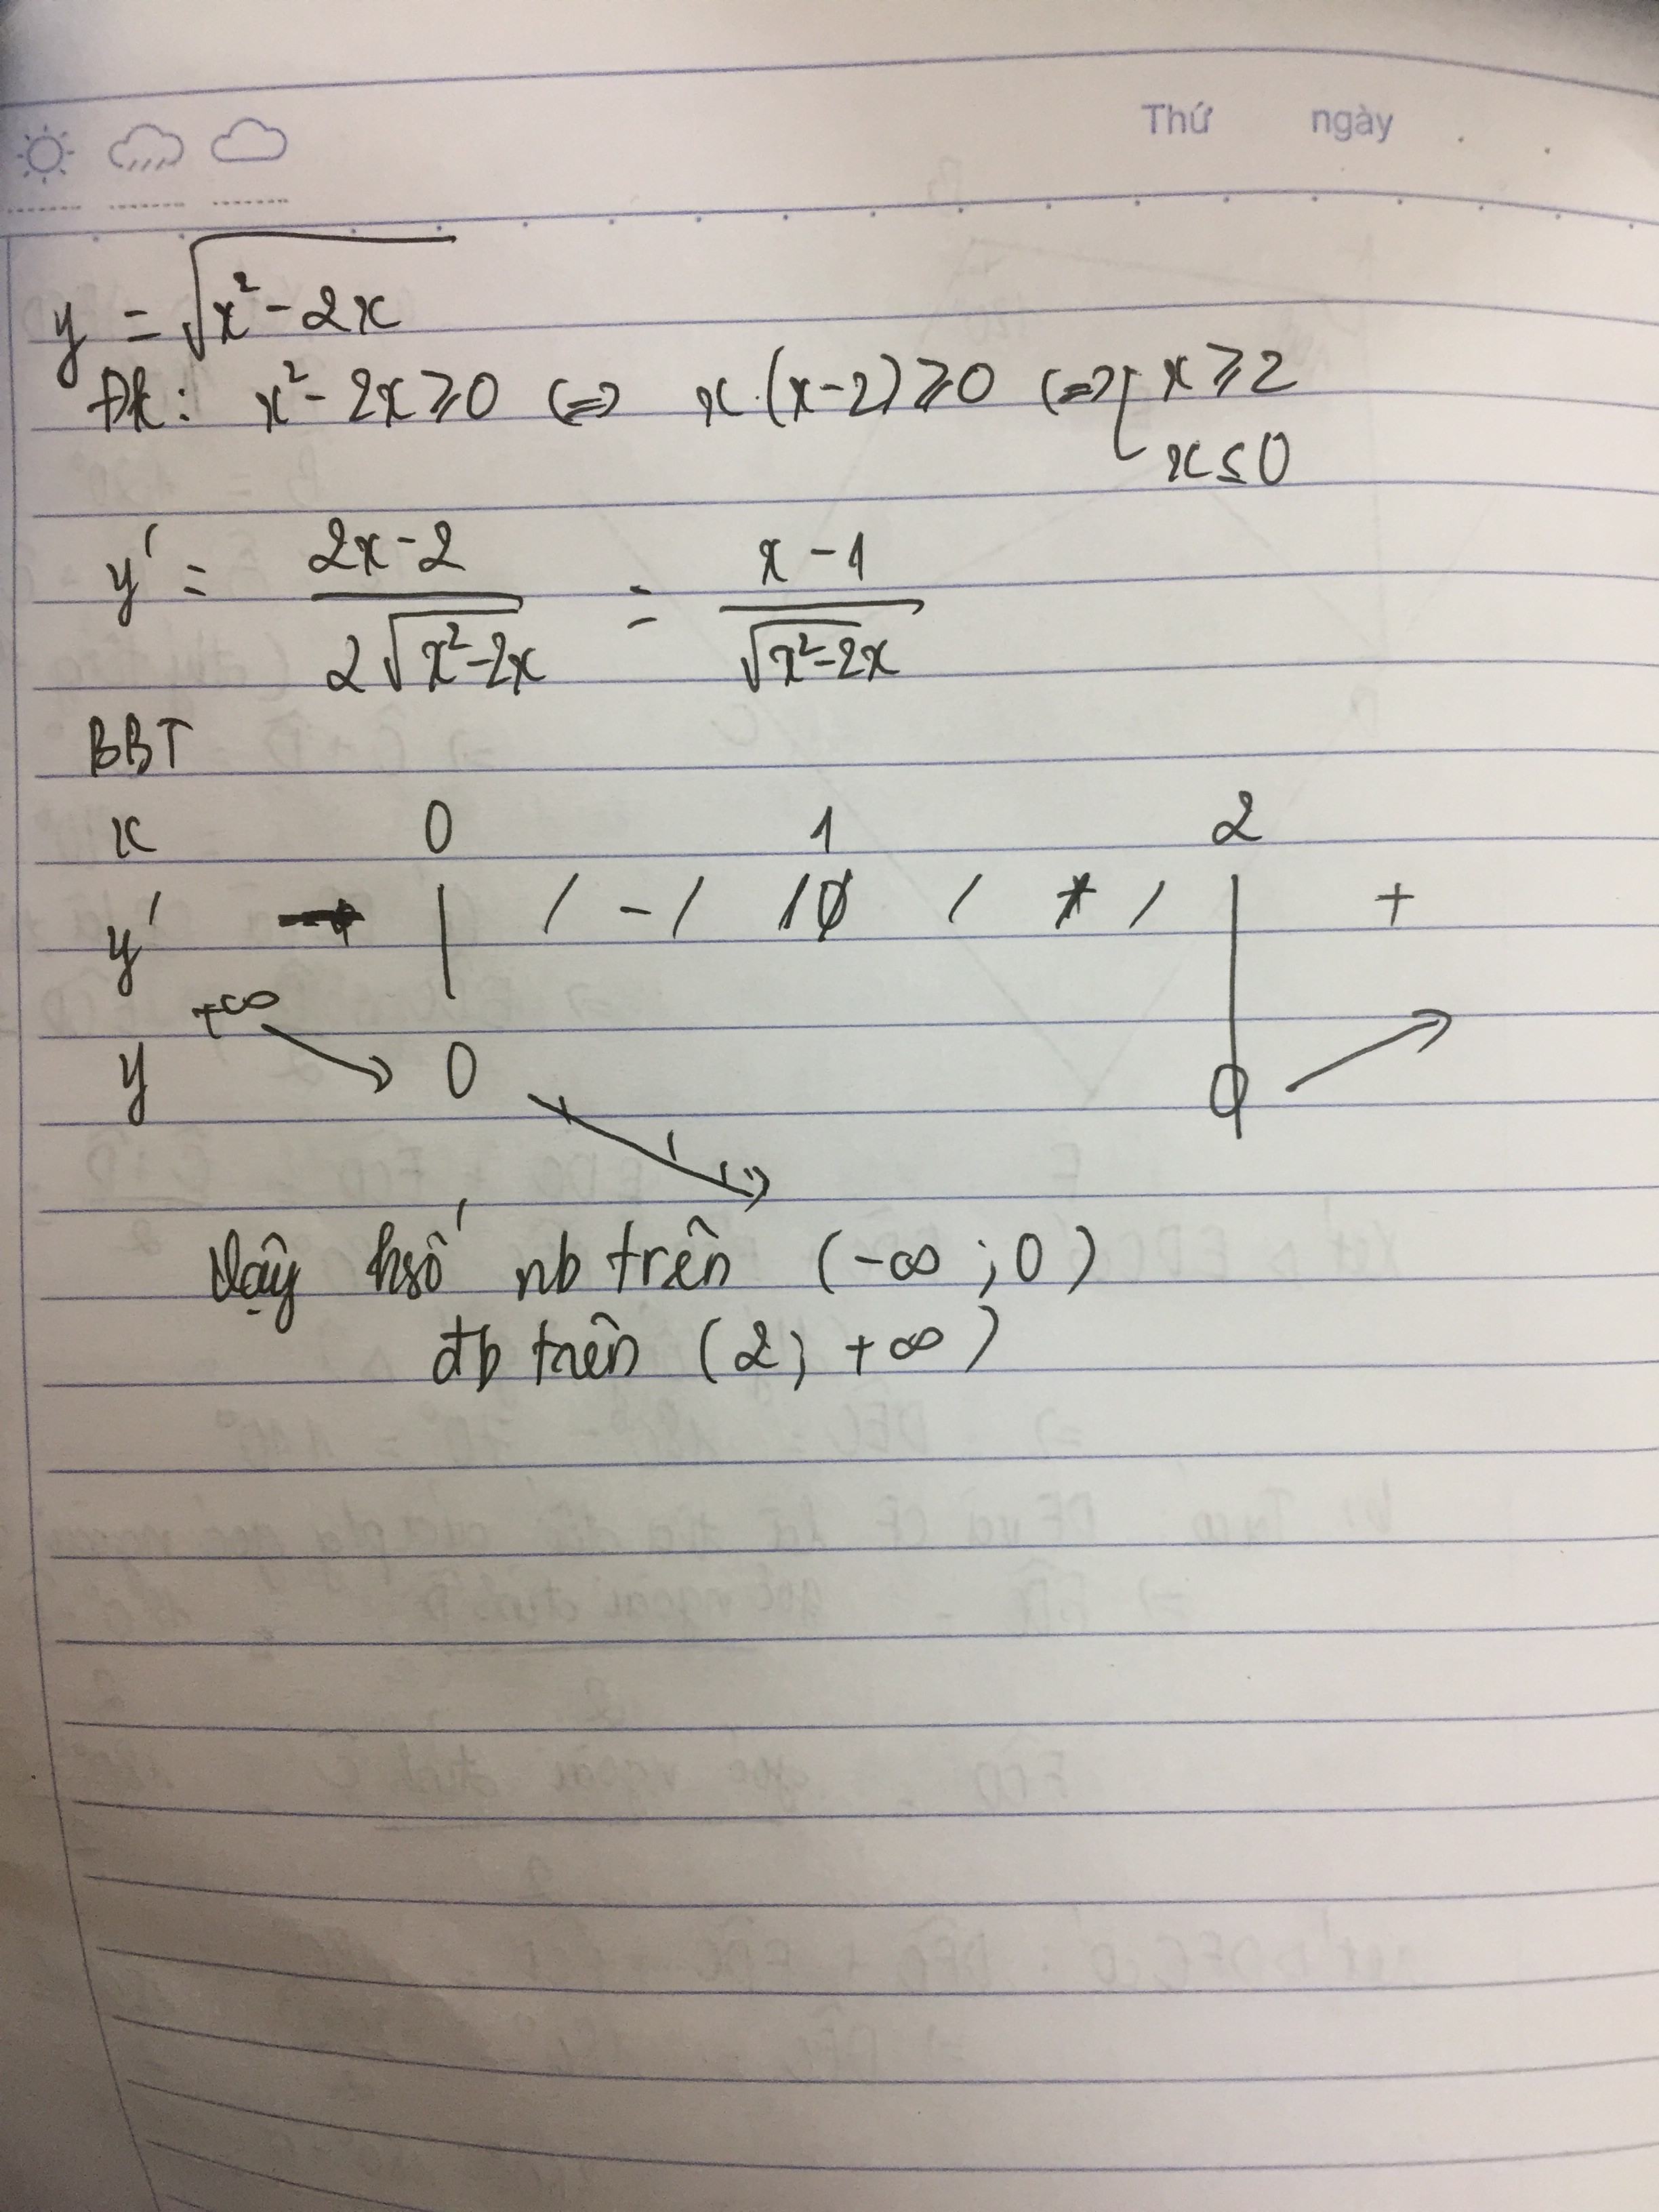 Thứ ngày
y = √(x² - 2x)
Đk: x² - 2x ≥ 0 (=) x.(x-2) ≥ 0 (=) [ x ≥ 2
x ≤ 0
y' = (2x-2)/(2√(x²-2x)) = (x-1)/(√(x²-2x))
BBT
x 0 1 2
y' - | / - / / 0 / / | +
+∞
y 0 0
Vậy hsố nb trên (-∞ ; 0)
đb trên (2; +∞)